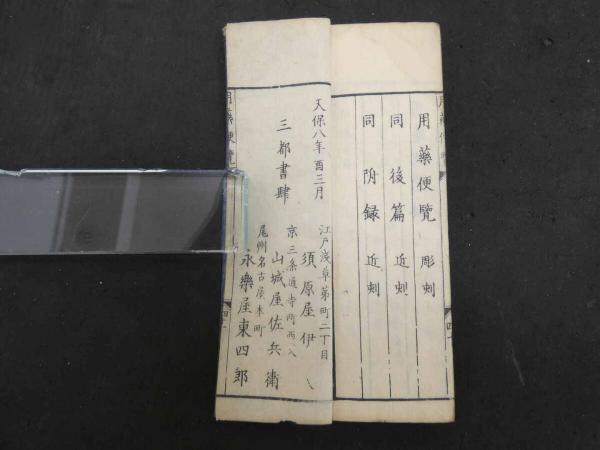 用藥便覽 彫刻
同後篇 近刻
同附録 近刻
天保八年酉三月
三都書肆
江戸淺草茅町二丁目
須原屋伊八
京三条通寺町西入
山城屋佐兵衛
尾州名古屋本町
永樂屋東四郎
用藥便覽